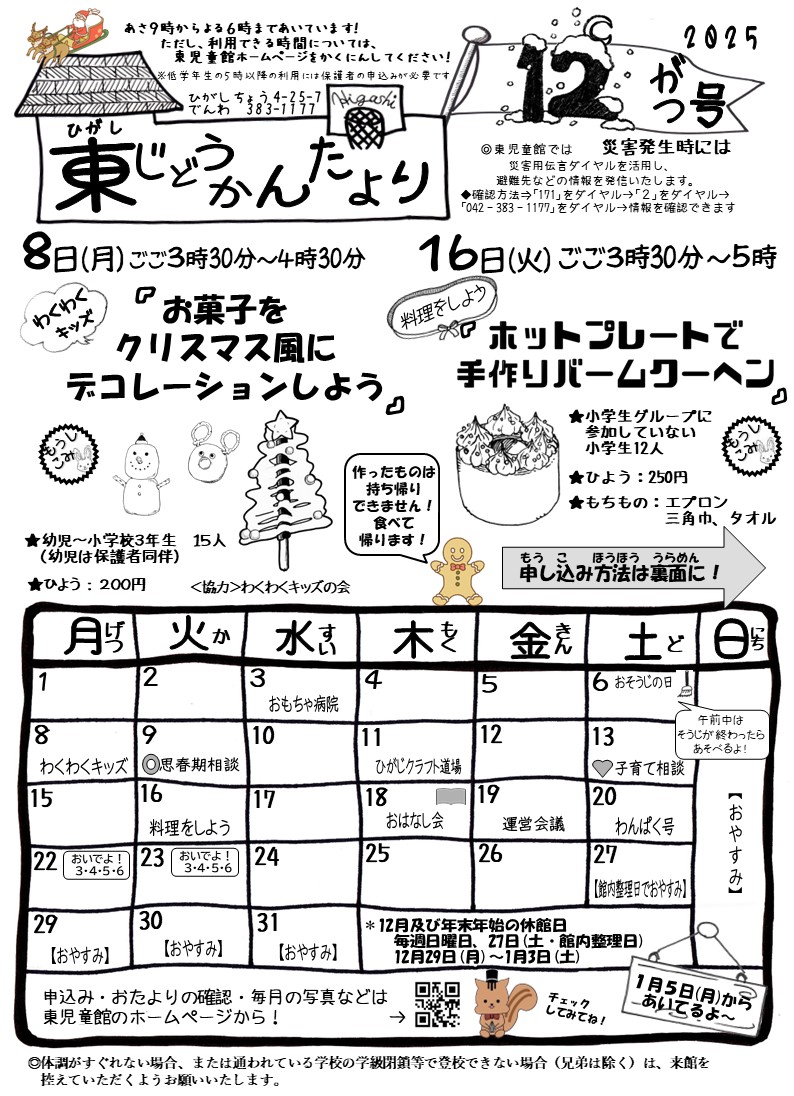 あさ9時からよる6時まであいています!
ただし、利用できる時間については、
東児童館ホームページをかくにんしてください!
※低学年生の5時以降の利用には保護者の申込みが必要です
ひがしちょう4-25-7
でんわ 383-1177
Higashi
ひがし
東じどうかんたより
2025
12がつ号
◎東児童館では 災害発生時には
災害用伝言ダイヤルを活用し、
避難先などの情報を発信いたします。
◆確認方法⇒「171」をダイヤル→「2」をダイヤル→
「042-383-1177」をダイヤル→情報を確認できます
8日(月)ごご3時30分～4時30分
わくわくキッズ
『お菓子を
クリスマス風に
デコレーションしよう』
もうしこみ
★幼児～小学校3年生 15人
(幼児は保護者同伴)
★ひよう:200円 <協力>わくわくキッズの会
作ったものは
持ち帰り
できません!
食べて
帰ります!
16日(火)ごご3時30分～5時
料理をしよう
『ホットプレートで
手作りバームクーヘン』
★小学生グループに
参加していない
小学生12人
★ひよう:250円
★もちもの:エプロン
三角巾、タオル
もうしこみ
もう こ ほうほう うらめん
申し込み方法は裏面に!
月げつ 火か 水すい 木もく 金きん 土ど 日にち
1 2 3 4 5 6 おそうじの日
おもちゃ病院
午前中は
そうじが終わったら
あそべるよ!
8 9 10 11 12 13
わくわくキッズ ◎思春期相談 ひがじクラフト道場 子育て相談
15 16 17 18 19 20
料理をしよう おはなし会 運営会議 わんぱく号
【おやすみ】
22 おいでよ! 3・4・5・6 23 おいでよ! 3・4・5・6 24 25 26 27
【館内整理日でおやすみ】
29 30 31
【おやすみ】 【おやすみ】 【おやすみ】
＊12月及び年末年始の休館日
毎週日曜日、27日(土・館内整理日)
12月29日(月)～1月3日(土)
1月5日(月)から
あいてるよ～
申込み・おたよりの確認・毎月の写真などは
東児童館のホームページから! →
チェック
してみてね!
◎体調がすぐれない場合、または通われている学校の学級閉鎖等で登校できない場合(兄弟は除く)は、来館を
控えていただくようお願いいたします。